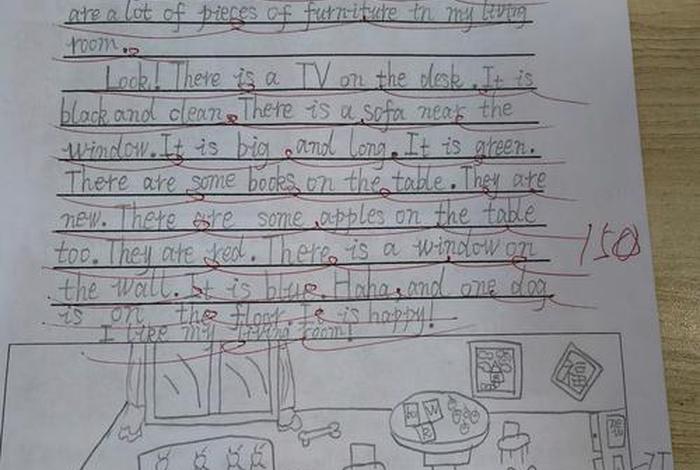 are a lot of pieces of furniture in my living
room.
Look! There is a TV on the desk. It is
black and clean. There is a sofa near the
window. It is big, and long. It is green.
There are some books on the table. They are
new. There are some apples on the table
too. They are red. There is a window on
the wall. It is blue. Haha, and one dog
is on the floor. It is happy!
I like my living room!
150
福
W